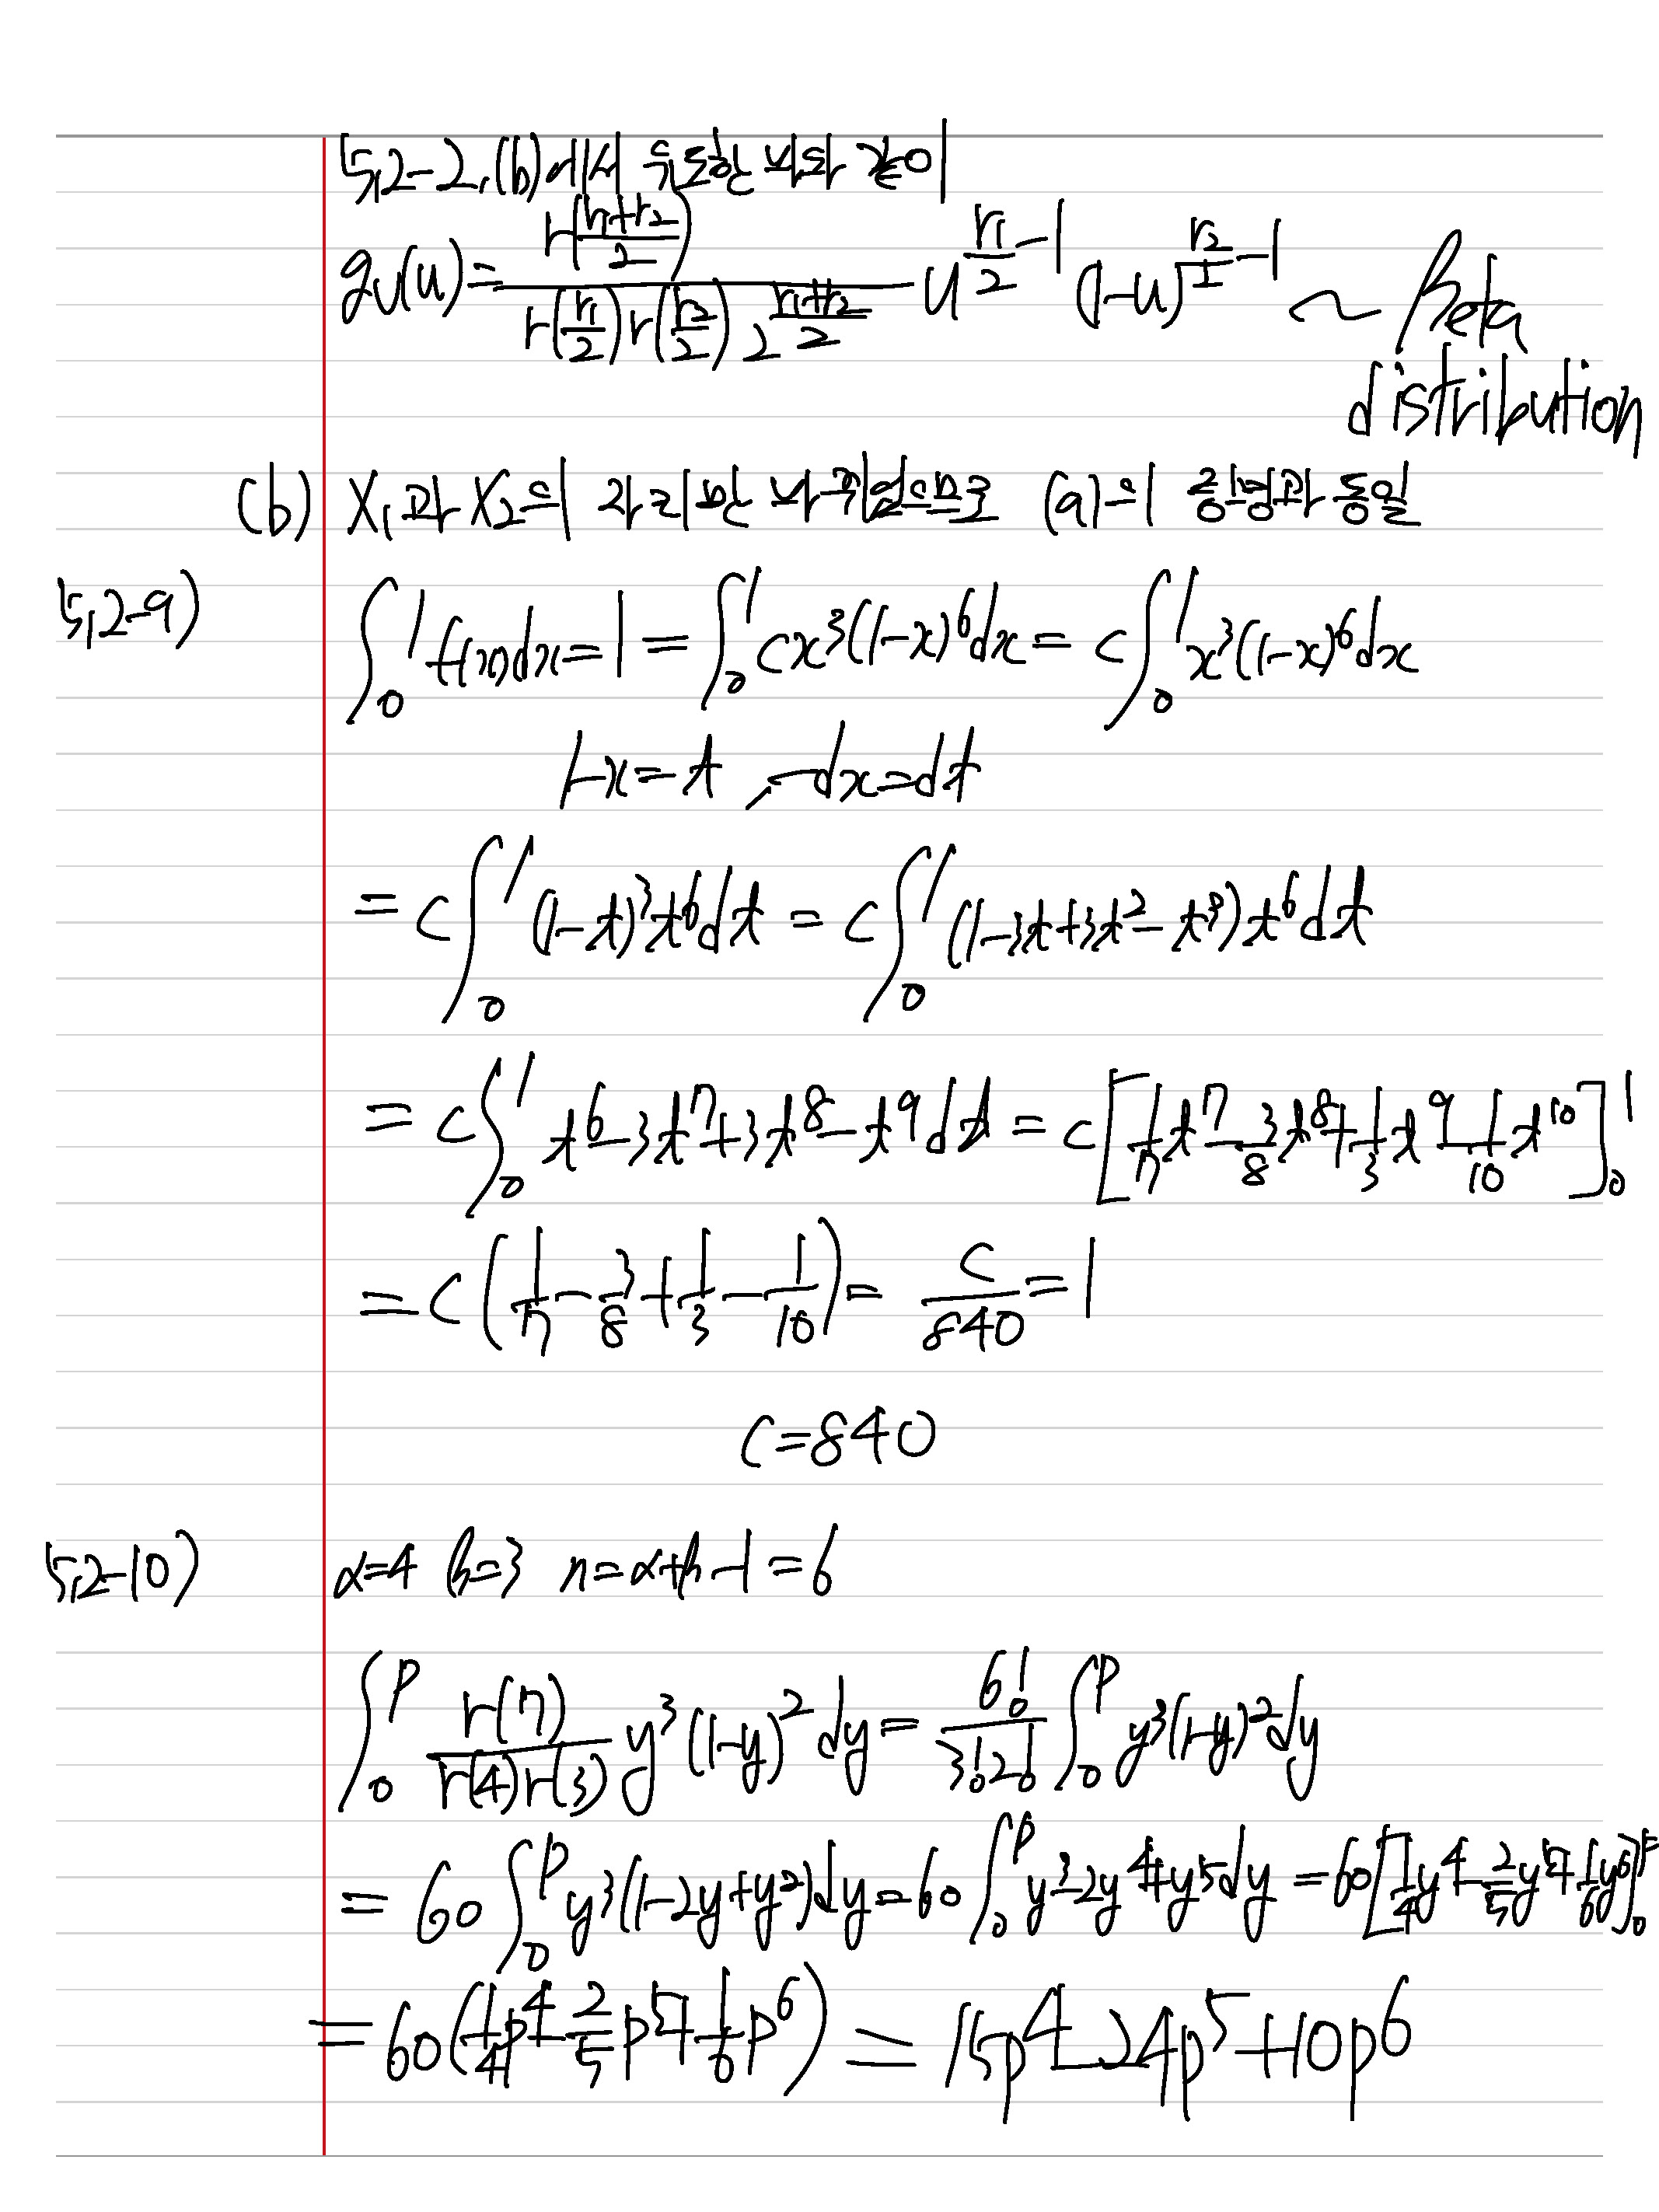 5.2-2.(b)에서 유도한 바와 같이
g_U(u) = Γ((r₁+r₂)/2) / (Γ(r₁/2)Γ(r₂/2) 2^((r₁+r₂)/2)) u^(r₁/2 -1) (1-u)^(r₂/2 -1) ~ Beta
distribution
(b) X₁과 X₂의 자리만 바뀌었으므로 (a)의 증명과 동일
5.2-9) ∫₀¹ f(x)dx = 1 = ∫₀¹ cx³(1-x)⁶dx = c∫₀¹ x³(1-x)⁶dx
1-x = t, -dx = dt
= c∫₀¹ (1-t)³t⁶dt = c∫₀¹ (1-3t+3t²-t³)t⁶dt
= c∫₀¹ t⁶-3t⁷+3t⁸-t⁹dt = c[1/7 t⁷ - 3/8 t⁸ + 1/3 t⁹ - 1/10 t¹⁰]₀¹
= c(1/7 - 3/8 + 1/3 - 1/10) = c/840 = 1
c = 840
5.2-10) α=4 β=3 n=α+β-1=6
∫₀ᵖ Γ(7)/(Γ(4)Γ(3)) y³(1-y)²dy = 6!/(3!2!) ∫₀ᵖ y³(1-y)²dy
= 60∫₀ᵖ y³(1-2y+y²)dy = 60∫₀ᵖ y³-2y⁴+y⁵dy = 60[1/4 y⁴ - 2/5 y⁵ + 1/6 y⁶]₀ᵖ
= 60(1/4 p⁴ - 2/5 p⁵ + 1/6 p⁶) = 15p⁴-24p⁵+10p⁶